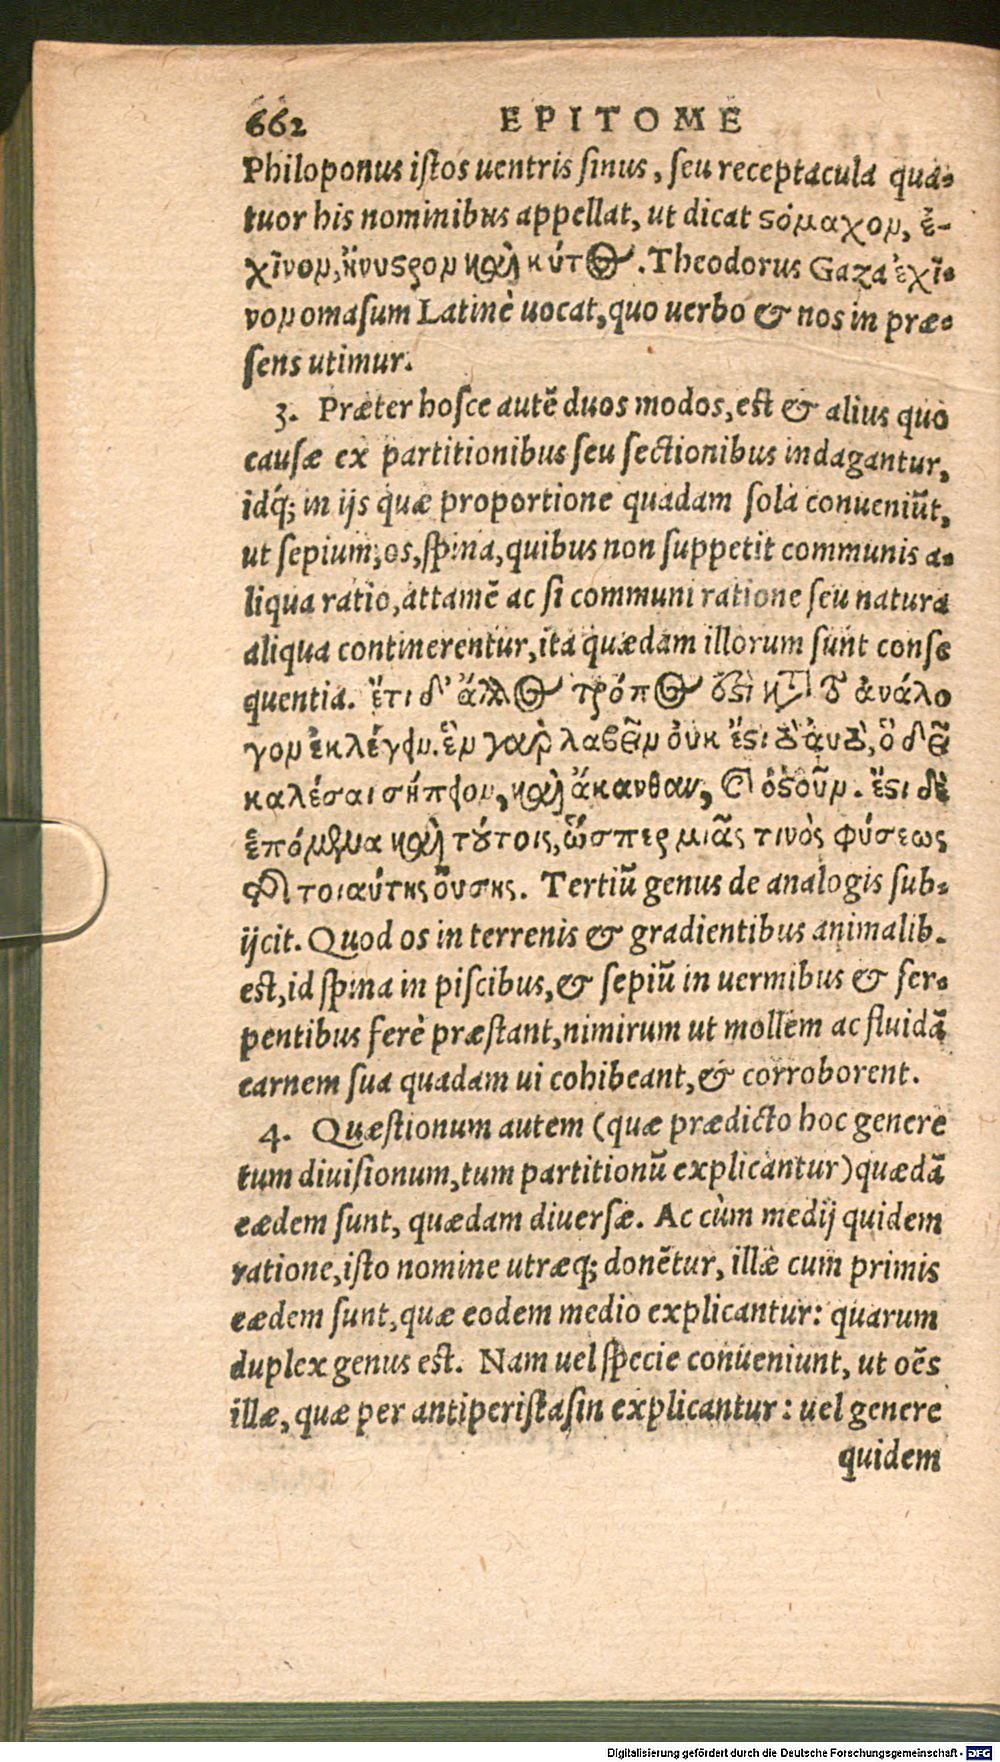 662 EPITOME
Philoponus iſtos uentris ſinus, ſeu receptacula qua-
tuor his nominibus appellat, ut dicat ϛόμαχον, ἐ-
χῖνον, ἤνυϛρον καὶ κύτος. Theodorus Gaza ἐχῖ-
νον omaſum Latinè uocat, quo uerbo & nos in præ-
ſens utimur.
3. Præter hoſce autē duos modos, eſt & alius quo
cauſæ ex partitionibus ſeu ſectionibus indagantur,
idq́; in ijs quæ proportione quadam ſola conueniūt,
ut ſepium, os, ſpina, quibus non ſuppetit communis a-
liqua ratio, attamē ac ſi communi ratione ſeu natura
aliqua continerentur, ita quædam illorum ſunt conſe
quentia. ἔτι δ' ἄλλος τρόπος ὅϛι κατὰ τὸ ἀνάλο
γον ἐκλέγειν. ἓν γαρ̀ λαβεῖν οὐκ ἔϛι τὸ ἀυτὸ, ὃ δεῖ
καλέσαι σήπειον, καὶ ἄκανθαν, καὶ ὀϛοῦν. ἔϛι δὲ
ἑπόμενα καὶ τούτοις, ὥσπερ μιᾶς τινὸς φύσεως
τοιαύτης οὔσης. Tertiū genus de analogis ſub-
ijcit. Quod os in terrenis & gradientibus animalib.
eſt, id ſpina in piſcibus, & ſepiū in uermibus & ſer-
pentibus ferè præſtant, nimirum ut mollem ac fluidā
carnem ſua quadam ui cohibeant, & corroborent.
4. Quæſtionum autem (quæ prædicto hoc genere
tum diuiſionum, tum partitionū explicantur) quædā
eædem ſunt, quædam diuerſæ. Ac cùm medij quidem
ratione, iſto nomine utræq; donētur, illæ cum primis
eædem ſunt, quæ eodem medio explicantur: quarum
duplex genus eſt. Nam uel ſpecie conueniunt, ut oēs
illæ, quæ per antiperiſtaſin explicantur: uel genere
quidem
Digitalisierung gefördert durch die Deutsche Forschungsgemeinschaft - DFG